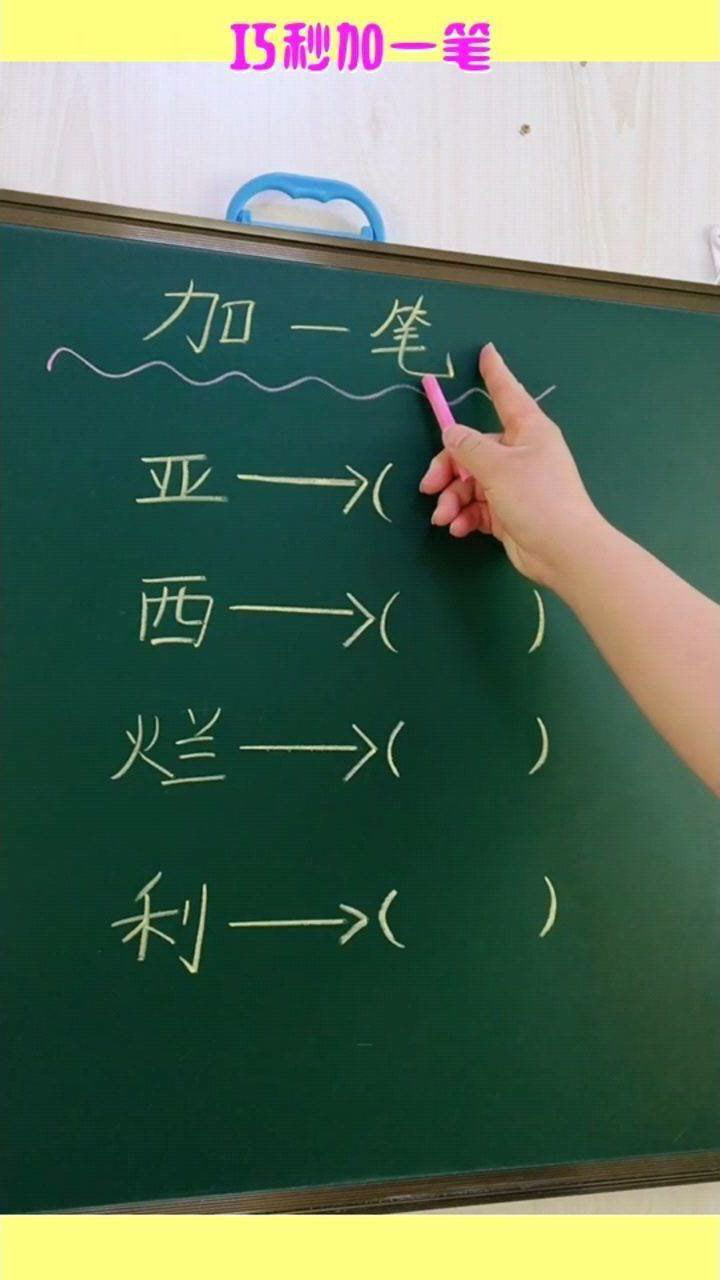 15秒加一笔
加一笔
亚→(
西→( )
烂→( )
利→( )